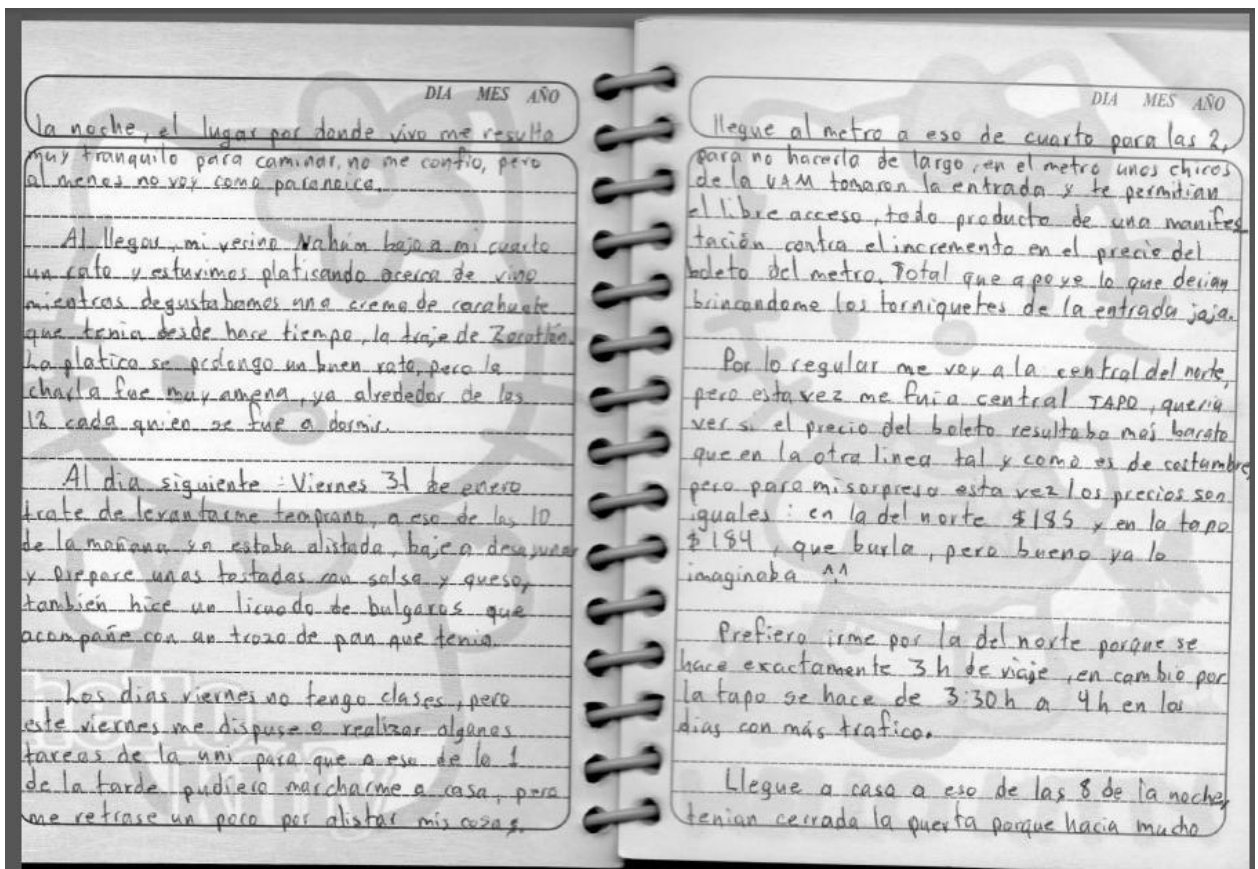 DIA MES AÑO
la noche, el lugar por donde vivo me resulta
muy tranquilo para caminar, no me confio, pero
al menos no voy como paranoica.
Al llegar, mi vesino Nahúm bajo a mi cuarto
un rato y estuvimos platicando acerca de vino
mientras degustabamos una crema de cacahuate
que tenia desde hace tiempo, la traje de Zocotlán.
La platica se prolongo un buen rato, pero la
charla fue muy amena, ya alrededor de las
12 cada quien se fue a dormir.
Al dia siguiente : Viernes 31 de enero
trate de levantarme temprano, a eso de las 10
de la mañana ya estaba alistada, baje a desayunar
y prepare unas tostadas con salsa y queso,
tambien hice un licuado de bulgaros que
acompañe con un trozo de pan que tenia.
Los dias viernes no tengo clases, pero
este viernes me dispuse a realizar algunas
tareas de la uni para que a eso de la 1
de la tarde pudiera marcharme a casa, pero
me retrase un poco por alistar mis cosas.
DIA MES AÑO
llegue al metro a eso de cuarto para las 2,
para no hacerla de largo, en el metro unos chicos
de la UAM tomaron la entrada y te permitian
el libre acceso, todo producto de una manifes
tación contra el incremento en el precio del
boleto del metro. Total que apoye lo que decian
brincandome los torniquetes de la entrada jaja.
Por lo regular me voy a la central del norte,
pero esta vez me fui a central TAPO, queria
ver si el precio del boleto resultaba mas barato
que en la otra linea tal y como es de costumbre,
pero para mi sorpresa esta vez los precios son
iguales : en la del norte $185 y en la tapo
$184, que burla, pero bueno ya lo
imaginaba ^.^
Prefiero irme por la del norte porque se
hace exactamente 3 h de viaje, en cambio por
la tapo se hace de 3:30 h a 4 h en los
dias con más trafico.
Llegue a casa a eso de las 8 de la noche,
tenian cerrada la puerta porque hacia mucho
hello
kitty